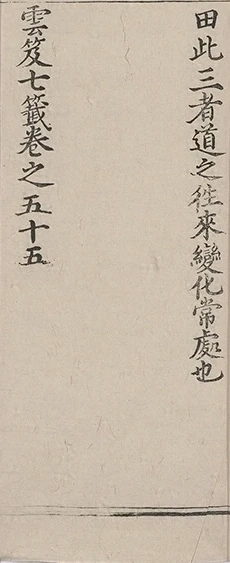 田此三者道之徃來變化常處也
雲笈七籖卷之五十五